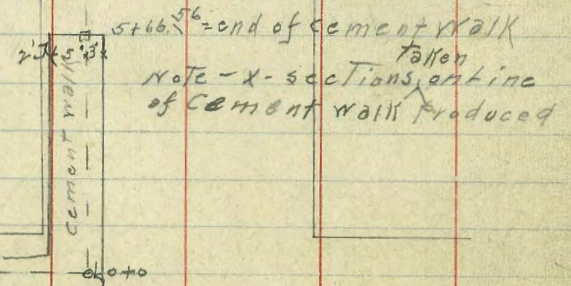 5+66.56 = end of cement walk
2' 5' 3'
Note - X-sections taken on line
of Cement walk Produced
cement walk
0+0